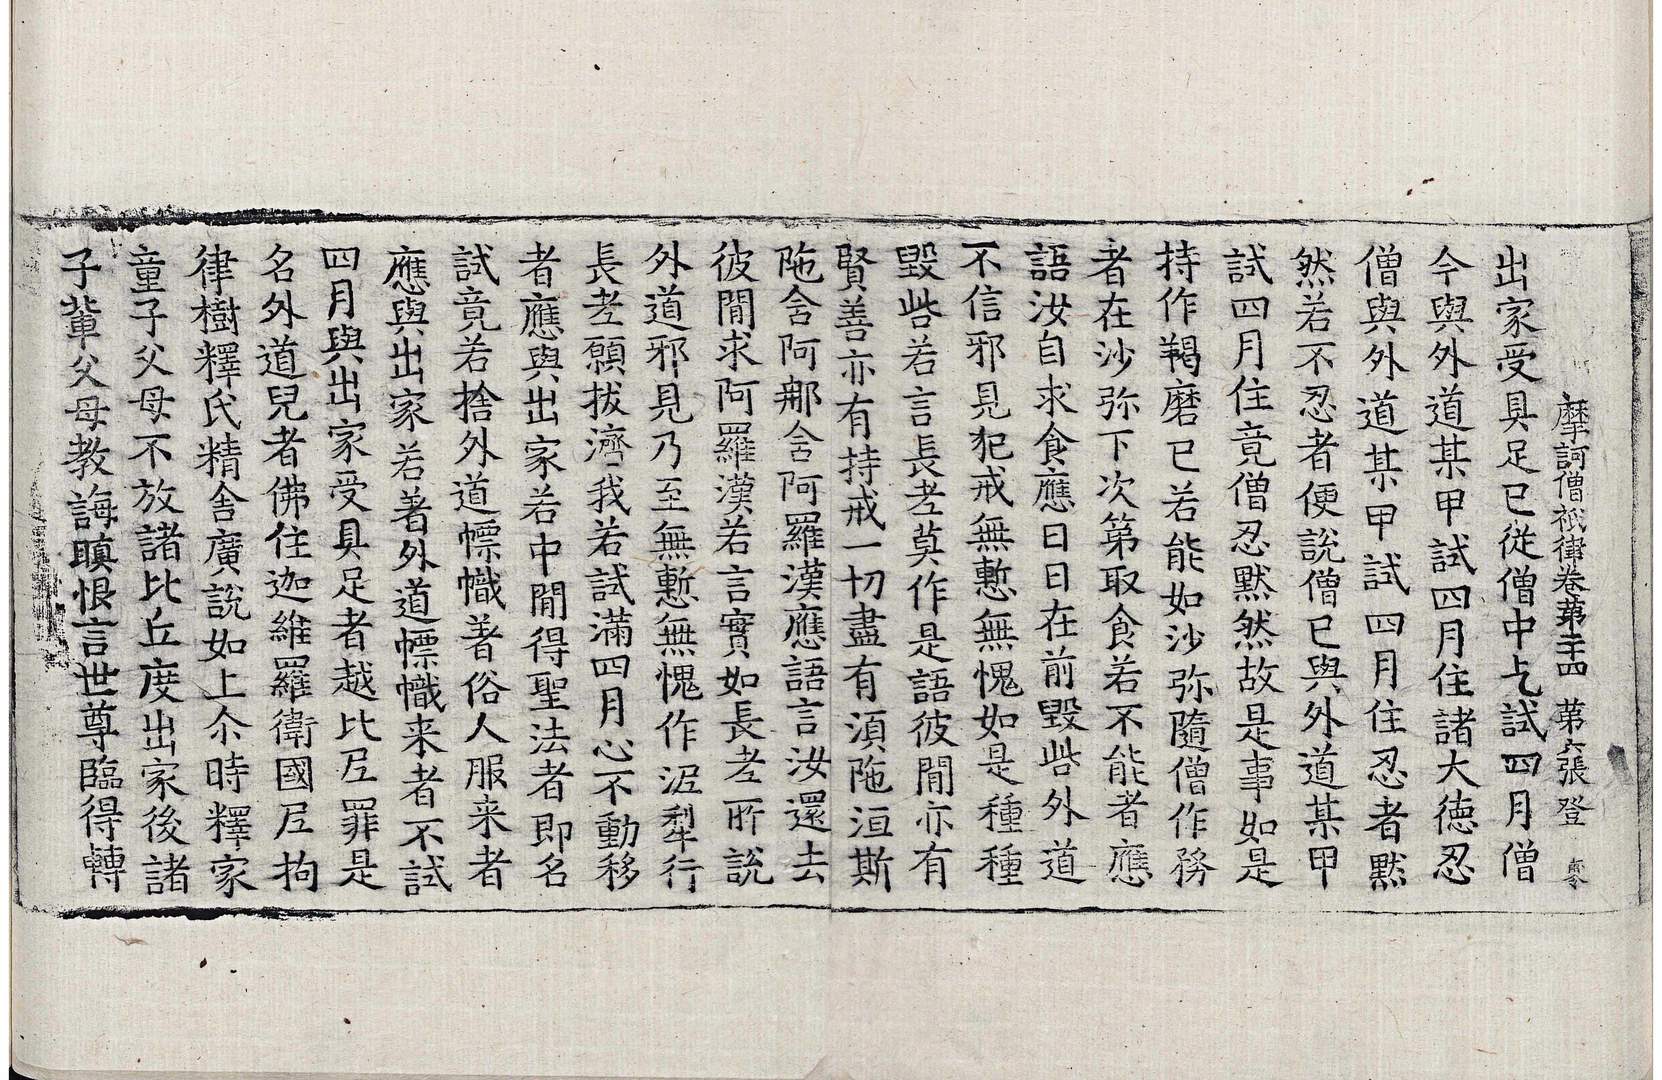 摩訶僧祇律卷第二十四　第六張　登
出家受具足已從僧中乞試四月僧
今與外道某甲試四月住諸大德忍
僧與外道某甲試四月住忍者黙
然若不忍者便說僧已與外道某甲
試四月住竟僧忍黙然故是事如是
持作羯磨已若能如沙弥隨僧作務
者在沙弥下次第取食若不能者應
語汝自求食應日日在前毀呰外道
不信邪見犯戒無慙無愧如是種種
毀呰若言長老莫作是語彼閒亦有
賢善亦有持戒一切盡有湏陁洹斯
陁舍阿𨚗舍阿羅漢應語言汝還去
彼閒求阿羅漢若言實如長老所說
外道邪見乃至無慙無愧作泥犁行
長老願拔濟我若試滿四月心不動移
者應與出家若中閒得聖法者即名
試竟若捨外道幖幟著俗人服来者
應與出家若著外道幖幟来者不試
四月與出家受具足者越比尼罪是
名外道兒者佛住迦維羅衛國尼拘
律樹釋氏精舍廣說如上尒時釋家
童子父母不放諸比丘度出家後諸
子輩父母教誨瞋恨言世尊臨得轉